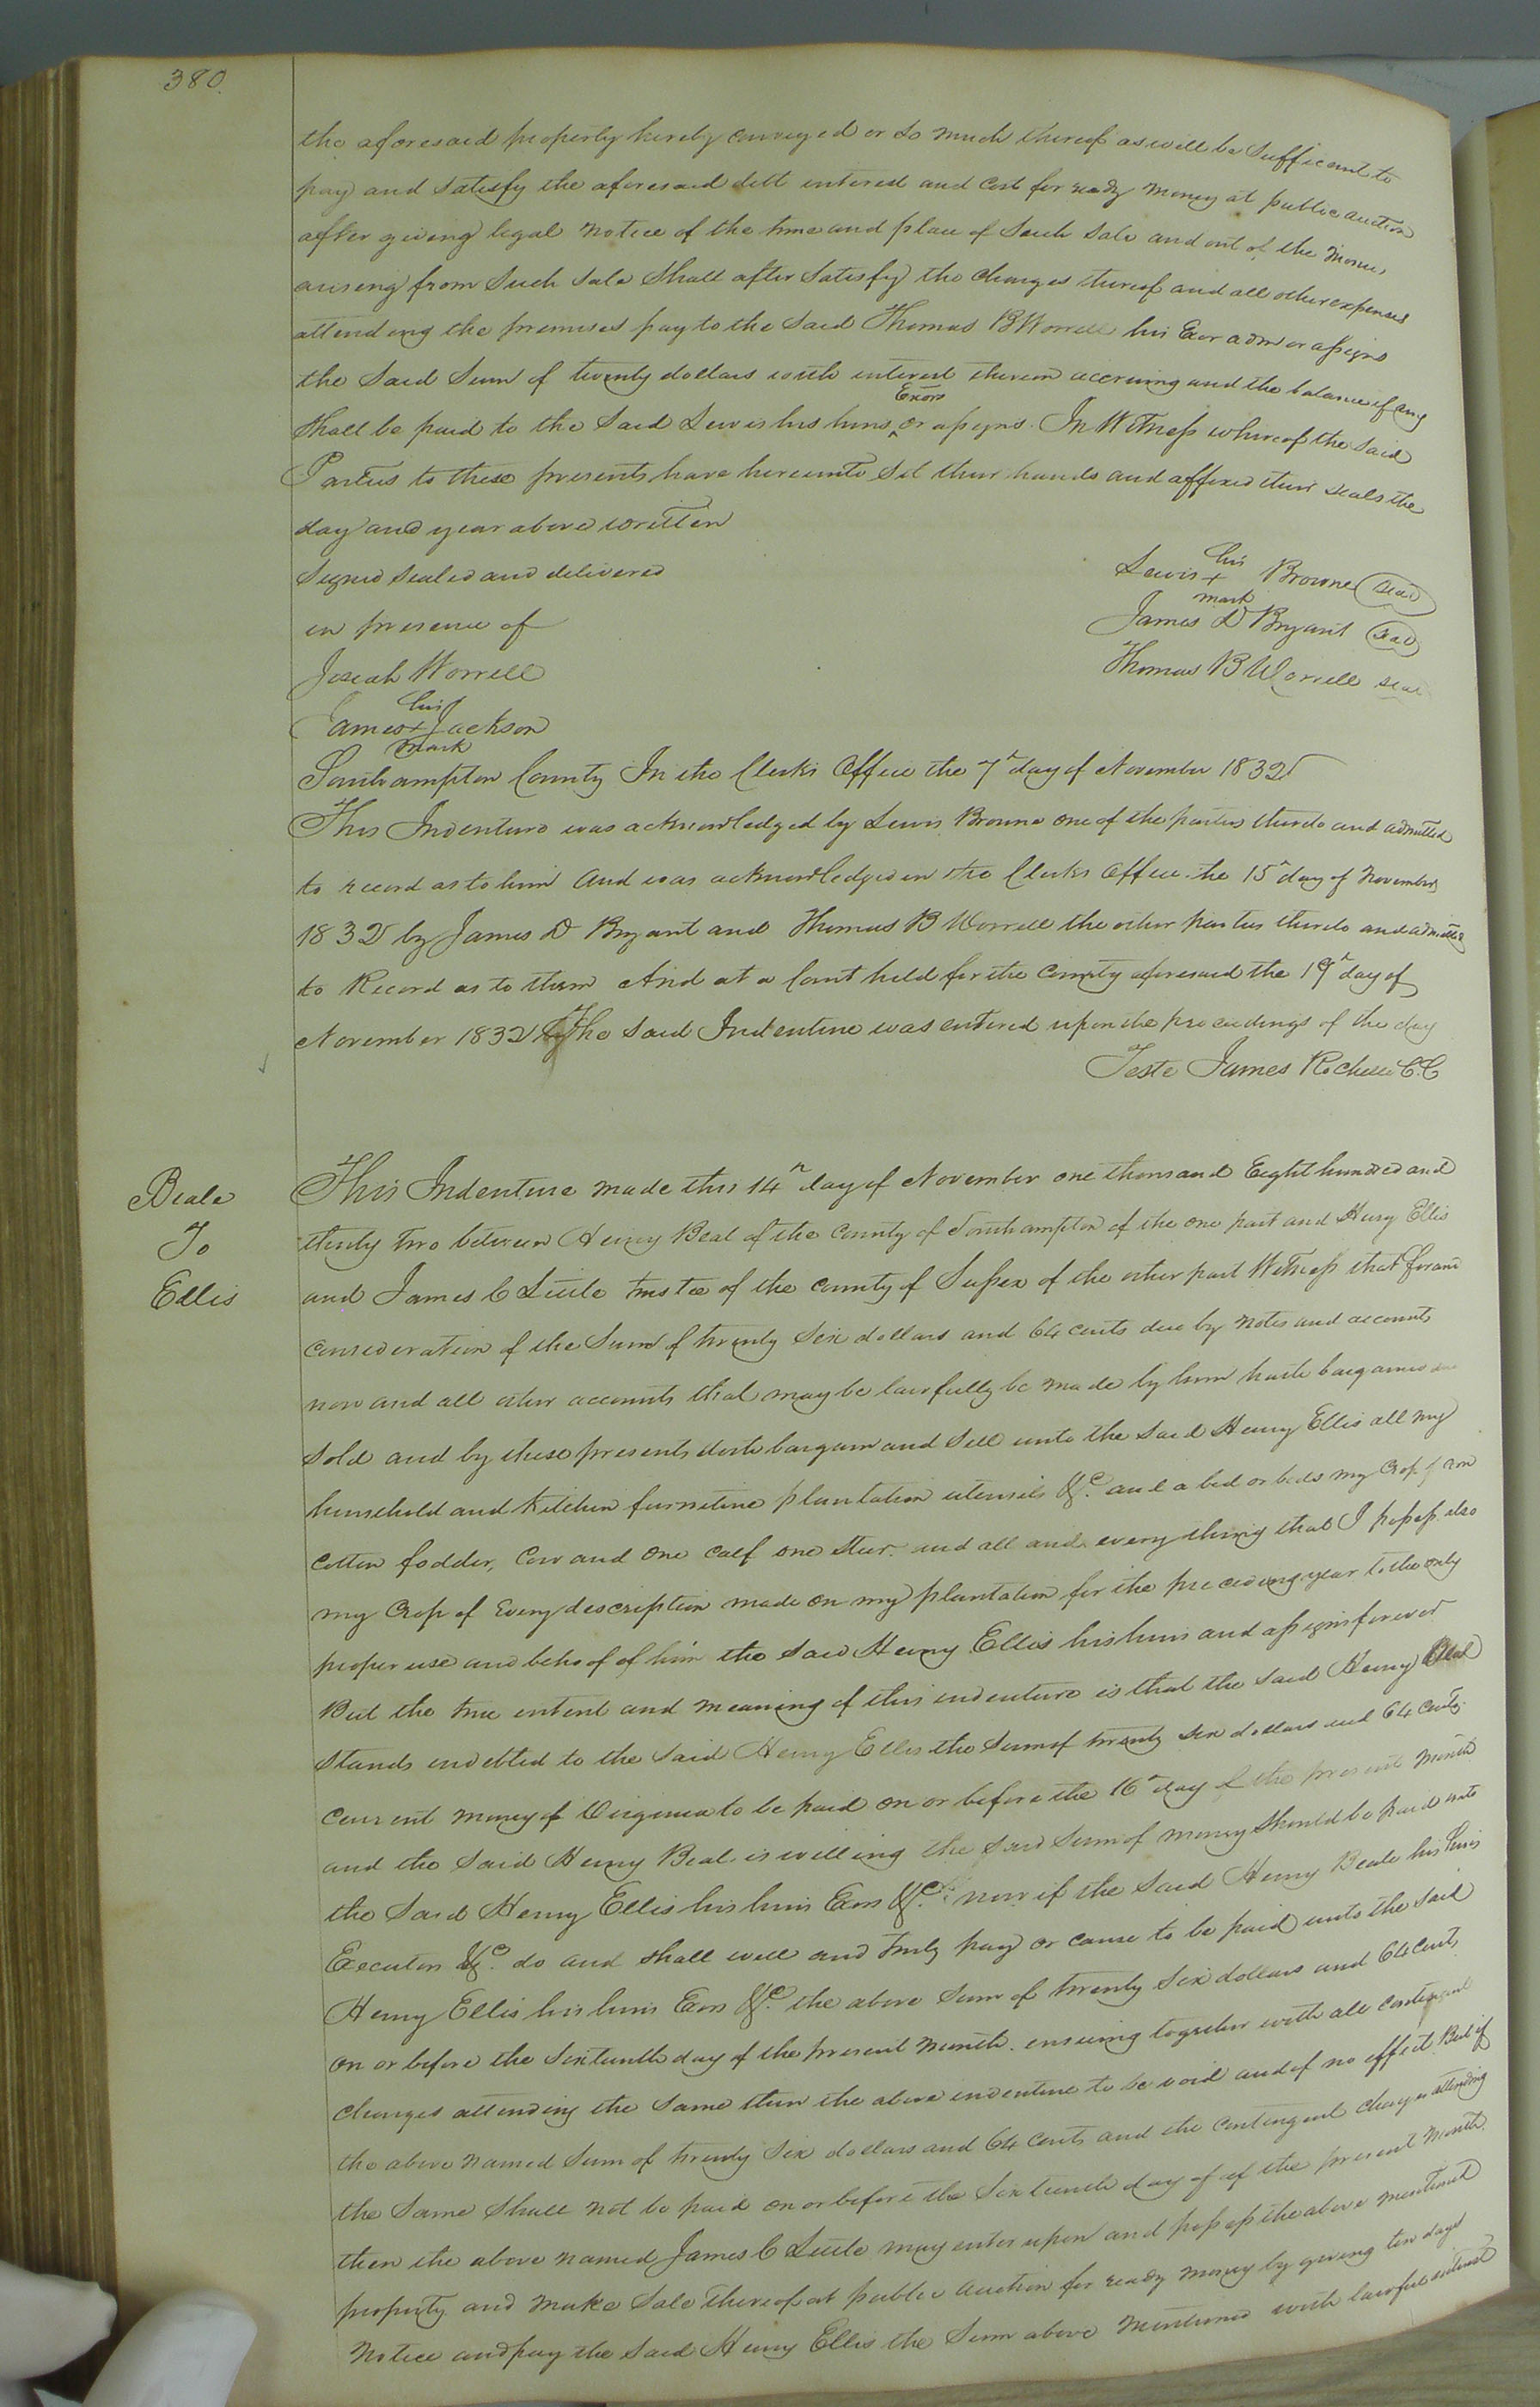 380.
the aforesaid property hereby conveyed or so much thereof as will be sufficeint to
pay and satisfy the aforesaid debt interest and cost for ready money at public auction
after giveing legal notice of the time and place of such sale and out of the
ariseing from such sale shall after satisfy the charges thereof and all other expenses
attending the premises pay to the said Thomas B Worrell his Exor adm or assigns
the said sum of twenty dollars with interest thereon accruing and the balance if any
Exors
shall be paid to the said Lewis his heirs ‸ or assigns. In Witness whereof the said
Parties to these presents have hereunto set their hands and affixed their seals the
day and year above written
Signed sealed and delivered
in presence of
Josiah Worrell
his
James + Jackson
mark
his
Lewis + Browne seal
mark
James D Bryant seal
Thomas B Worrell seal
Southampton County In the Clerks Office the 7th day of November 1832
This Indenture was acknowledged by Lewis Browne one of the parties thereto and admitted
to record as to him And was acknowledged in the Clerks Office the 15th day of November
1832 by James D Bryant and Thomas B Worrell the other parties thereto and admitted
to Record as to them And at a Court held for the County aforesaid the 19th day of
November 1832 The said Indenture was entered upon the proceedings of the day
Teste James Rochelle C.C
Beale
To
Ellis
This Indenture made this 14th day of November one thousand Eight hundred and
thirty two between Henry Beal of the County of Southampton of the one part and Henry Ellis
and James C Little trustee of the County of Sussex of the other part Witness that for and
consideration of the sum of twenty six dollars and 64 cents due by notes and accounts
now and all other accounts that may be lawfully be made by him hath bargained and
sold and by these presents doth bargain and sell unto the said Henry Ellis all my
household and kitchen furniture plantation utensils &c. and a bed or beds my crop of corn
cotton fodder, cow and one calf one steer. and all and every thing that I possess also
my crop of every description made on my plantation for the preceding year to the only
proper use and behoof of him the said Henry Ellis his heirs and assigns forever
But the true intent and meaning of this indenture is that the said Henry Beal
stands indebted to the said Henry Ellis the sum of twenty six dollars and 64 cents
current money of Virginia to be paid on or before the 16th day of the present month
and the said Henry Beal is willing the said sum of money should be paid unto
the said Henry Ellis his heirs Exors &c. now if the said Henry Beale his heirs
Executors &c. do and shall well and truly pay or cause to be paid unto the said
Henry Ellis his heirs Exors &c. the above sum of twenty six dollars and 64 cents
on or before the sixteenth day of the present month. ensuing together with all contingent
charges attending the same then the above indenture to be void and of no effect But if
the above named sum of twenty six dollars and 64 cents and the contingent charges attending
the same shall not be paid on or before the sixteenth day of of the present month.
then the above named James C Little may enter upon and possess the above mentioned
property and make sale thereof at public auction for ready money by giveing ten days
notice and pay the said Henry Ellis the sum above mentioned with lawful interest